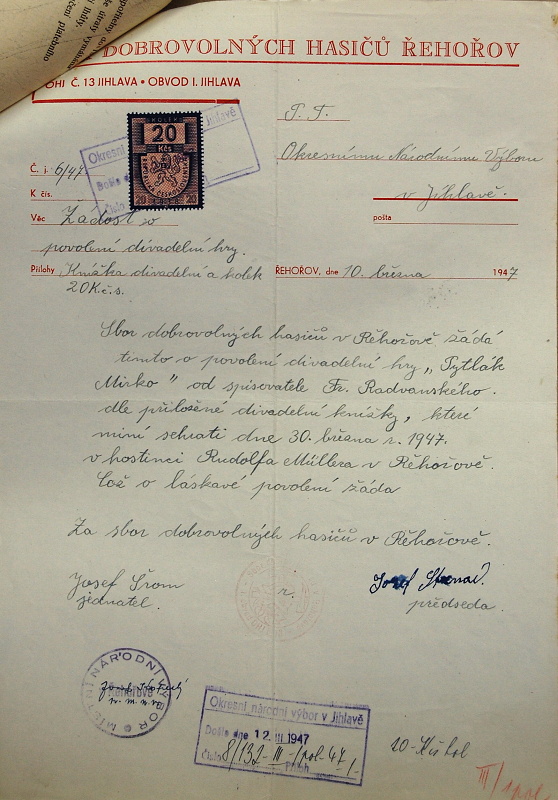 DOBROVOLNÝCH HASIČŮ ŘEHOŘOV
OHJ Č. 13 JIHLAVA • OBVOD I. JIHLAVA
P. T.
Okresnímu Národnímu Výboru
v Jihlavě.
pošta
KOLEK
20
Kčs
20 20
Okresní
Došlo dne
Číslo
Č. j. 6/47
K čís.
Věc Žádost o
povolení divadelní hry.
Přílohy Knížka divadelní a kolek
20 K.č.s.
ŘEHOŘOV, dne 10. března 1947
Sbor dobrovolných hasičů v Řehořově žádá
tímto o povolení divadelní hry „Pytlák
Mirko" od spisovatele Fr. Radvanského.
dle přiložené divadelní knížky, které
míní sehrati dne 30. března r. 1947.
v hostinci Rudolfa Müllera v Řehořově.
Což o láskavé povolení žádá
Za sbor dobrovolných hasičů v Řehořově.
Josef Šrom
jednatel.
r.
Josef
předseda.
MÍSTNÍ NÁRODNÍ VÝBOR
Řehořově
Okresní národní výbor v Jihlavě
Došlo dne 12. III 1947
Číslo 8/132-III-/pol-47
Příloh 1-
III/1 pol.